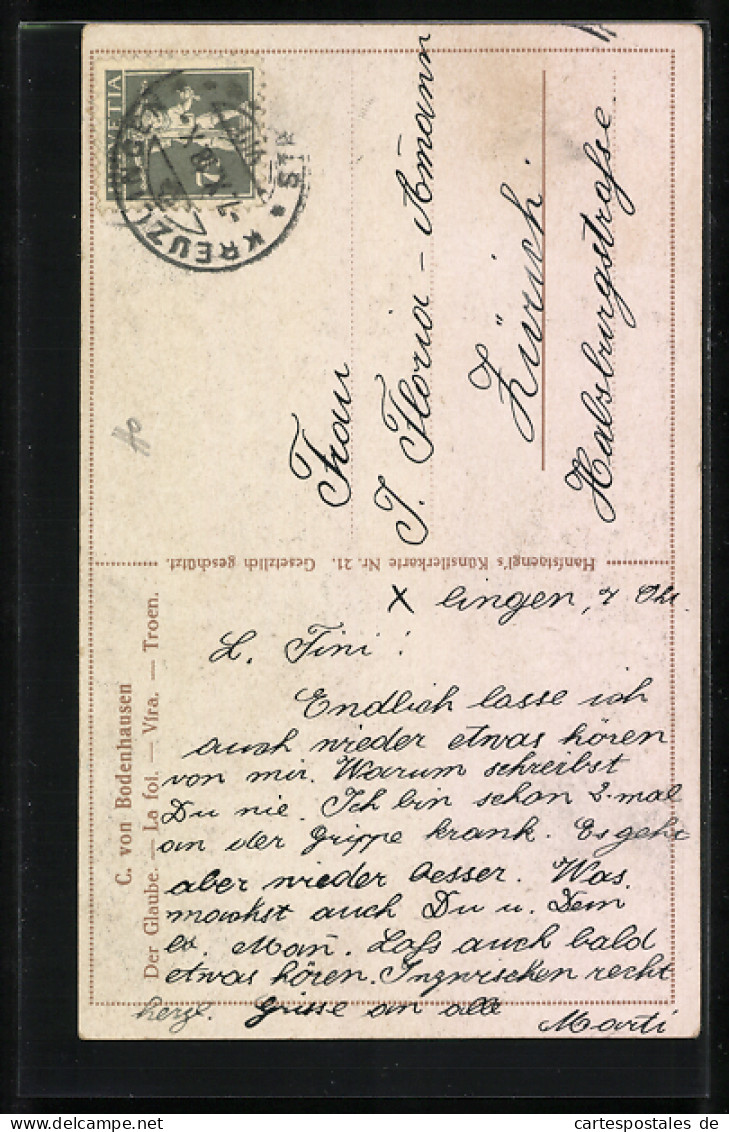 HELVETIA
7½
KREUZLINGEN
Frau
J. Floria - Am̄ann
Zürich
Habsburgstrasse
Hanfstaengl's Künstlerkarte Nr. 21. Gesetzlich geschützt.
C. von Bodenhausen
Der Glaube. — La foi. — Víra. — Troen.
X lingen, 7 Okt.
L. Tini!
Endlich lasse ich
auch wieder etwas hören
von mir. Warum schreibst
Du nie. Ich bin schon 2. mal
an der Grippe krank. Es geht
aber wieder besser. Was
machst auch Du u. Dein
lb. Man̄. Lass auch bald
etwas hören. Inzwischen recht
herzl. Grüsse an alle
Marti
cartespostales de